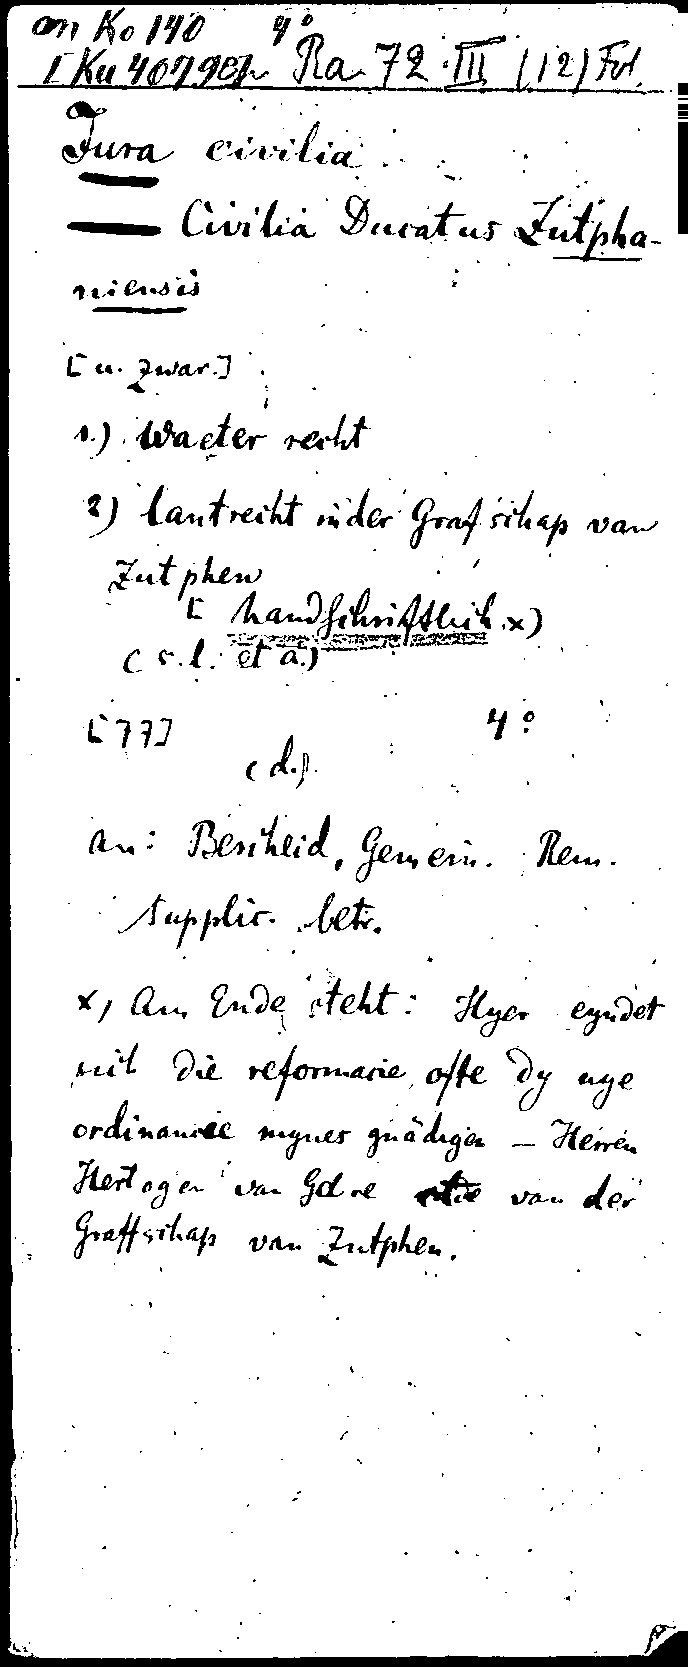 an Ko 140 4°
Ra 72 III (12) Fol.
Jura civilia
— Civilia Ducatus Zutpha-
niensis
[u. zwar.]
1.) Waeter recht
2) lantrecht inder Grafschap van
Zutphen
[handschriftlich x)
(s.l. et a.)
[77] 4°
(d.)
an: Bescheid, Gemein. Rem.
supplic. betr.
x, Am Ende steht: Hyer eyndet
sich die reformacie ofte dy nye
ordinancee mynes gnädigen — Herren
Hertogen van Gelre van der
Graffschap van Zutphen.